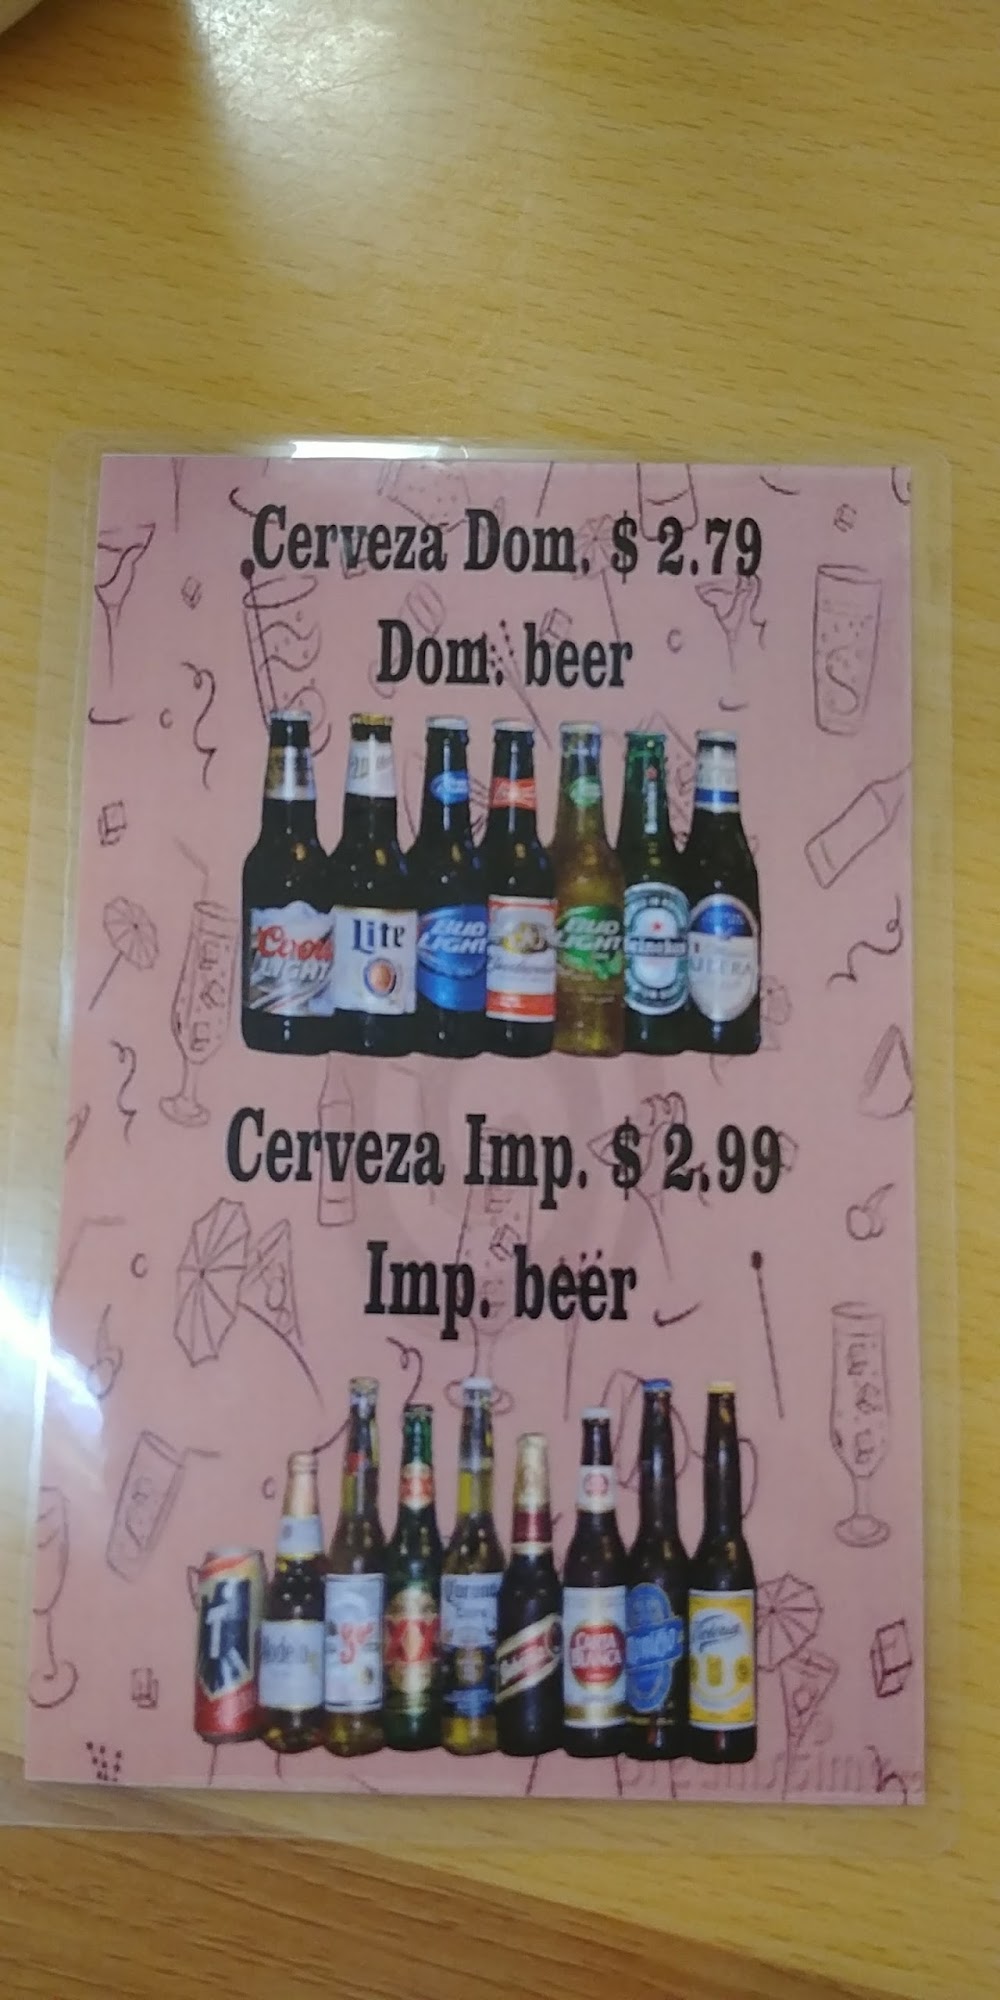 Cerveza Dom. $ 2.79
Dom. beer
Coors LIGHT
Lite
BUD LIGHT
Budweiser
BUD LIGHT
Heineken
ULTRA
Cerveza Imp. $ 2.99
Imp. beer
Modelo
XX
Corona
CARTA BLANCA